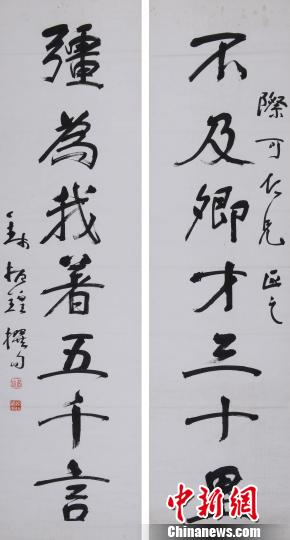 際可仁兄正之
不及卿才三十里
彊為我着五千言
中新网
Chinanews.com